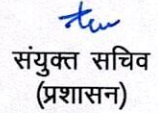 संयुक्त सचिव
(प्रशासन)